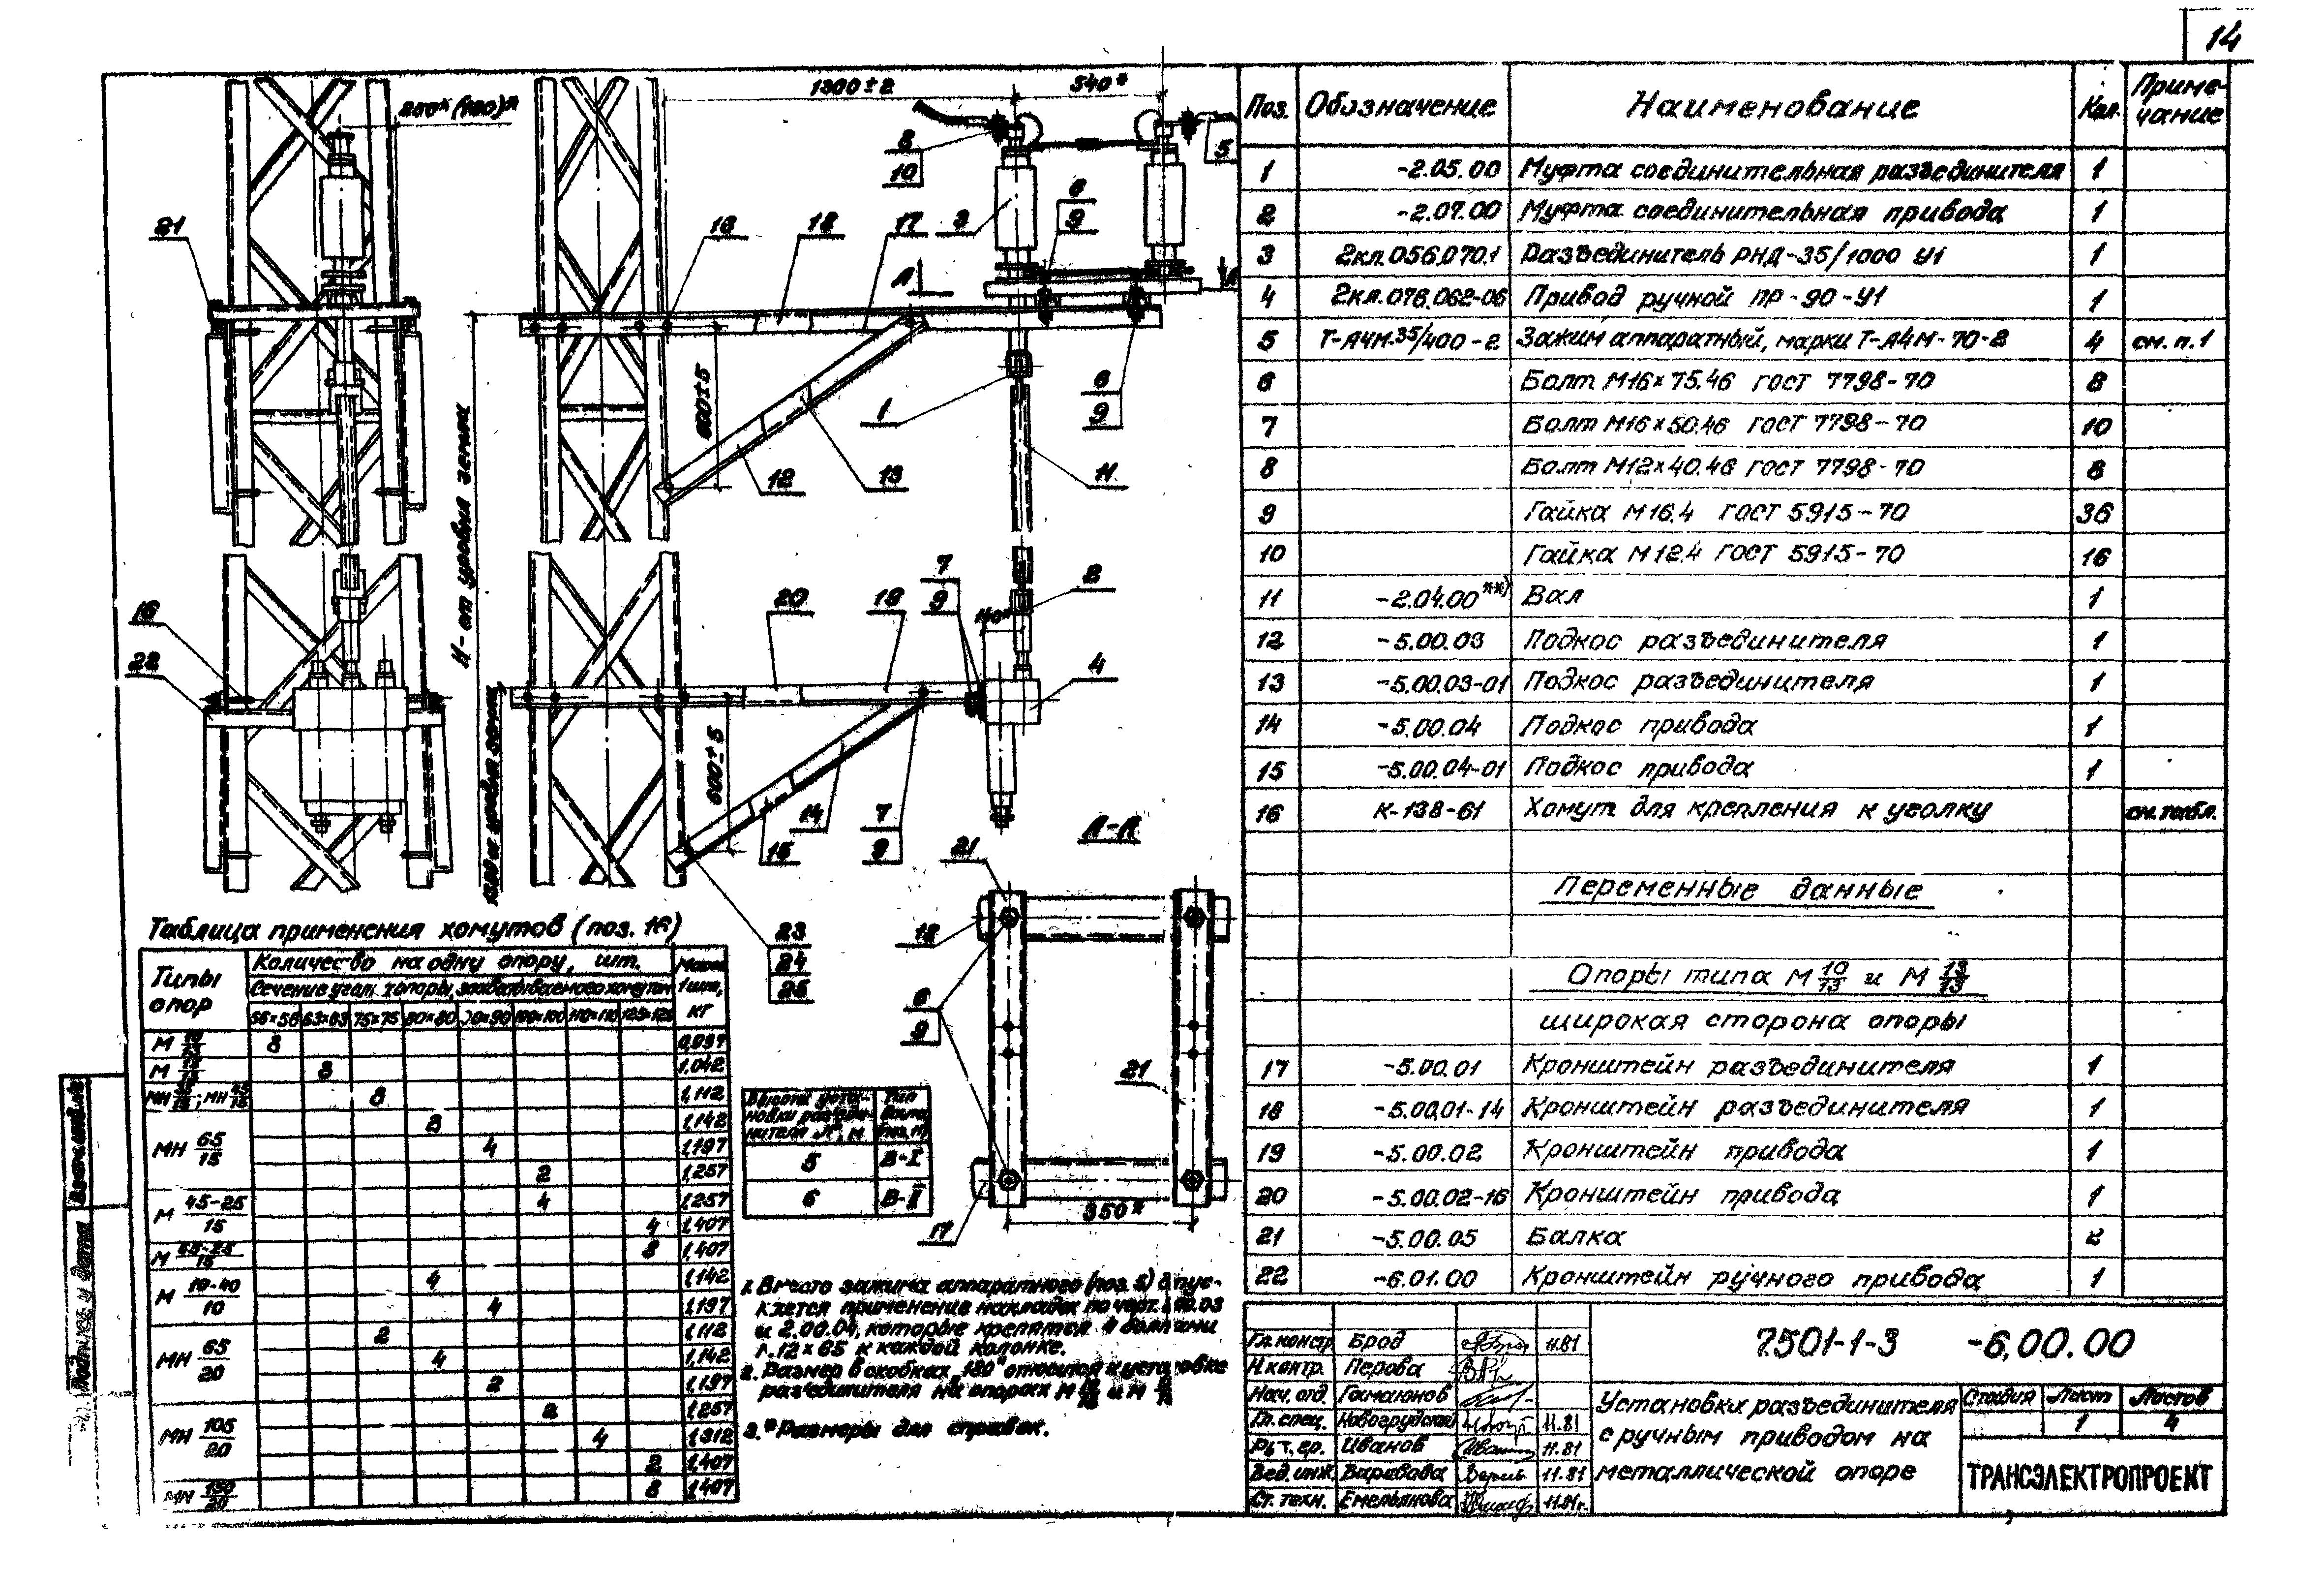 14
1300±2
540*
200* (180)*
21
16
18
17
3
8
10
5
6
9
А
600±5
12
13
1
6
9
11
Н - от уровня земли
7
9
2
20
19
140*
4
16
22
600±5
15
14
7
9
23
24
25
А-А
21
18
6
9
21
17
350*
Таблица применения хомутов (поз. 16)
Типы опор
Количество на одну опору, шт.
Масса 1 шт., кг
56×56 63×63 75×75 80×80 90×90 100×100 110×110 125×125
8
8 1,042
8 1,112
МН 65/15 8 1,142
4 1,197
2 1,257
М 45-25/15 4 1,257
4 1,407
8 1,407
М 10-40/10 4 1,142
4 1,197
МН 65/20 2 1,112
4 1,142
2 1,197
МН 105/20 2 1,257
4 1,312
2 1,407
МН 150/20 8 1,407
Высота уста-
новки разъеди-
нителя "Н", м
Тип
вала
(поз. 11)
5 В-I
6 В-II
1. Вместо зажима аппаратного (поз. 5) допус-
кается применение накладок по черт. 2.00.03
и 2.00.04, которые крепятся 4 болтами
М12×65 к каждой колонке.
2. Размер в скобках "180" относится к установке
разъединителя на опорах М
3. * Размеры для справок.
Поз. Обозначение Наименование Кол. Приме-
чание
1 -2.05.00 Муфта соединительная разъединителя 1
2 -2.07.00 Муфта соединительная привода 1
3 2кл.056.070.1 Разъединитель РНД-35/1000 У1 1
4 2кл.076.062-06 Привод ручной ПР-90-У1 1
5 Т-А4М.35/400-2 Зажим аппаратный, марки Т-А4М-70-2 4 см. п. 1
6 Болт М16×75.46 ГОСТ 7798-70 8
7 Болт М16×50.46 ГОСТ 7798-70 10
8 Болт М12×40.46 ГОСТ 7798-70 8
9 Гайка М16.4 ГОСТ 5915-70 36
10 Гайка М12.4 ГОСТ 5915-70 16
11 -2.04.00**) Вал 1
12 -5.00.03 Подкос разъединителя 1
13 -5.00.03-01 Подкос разъединителя 1
14 -5.00.04 Подкос привода 1
15 -5.00.04-01 Подкос привода 1
16 К-138-61 Хомут для крепления к уголку см. табл.
Переменные данные
Опоры типа М 10/13 и М 13/13
широкая сторона опоры
17 -5.00.01 Кронштейн разъединителя 1
18 -5.00.01-14 Кронштейн разъединителя 1
19 -5.00.02 Кронштейн привода 1
20 -5.00.02-16 Кронштейн привода 1
21 -5.00.05 Балка 2
22 -6.01.00 Кронштейн ручного привода 1
Гл. констр. Брод 11.81
Н. контр. Перова
Нач. отд. Гамаюнов
Гл. спец. Новогрудский 11.81
Рук. гр. Иванов 11.81
Вед. инж. Варивода 11.81
Ст. техн. Емельянова 11.81г.
7.501-1-3 -6.00.00
Установка разъединителя
с ручным приводом на
металлической опоре
Стадия Лист Листов
1 4
ТРАНСЭЛЕКТРОПРОЕКТ
Взам. инв. №
Подпись и дата